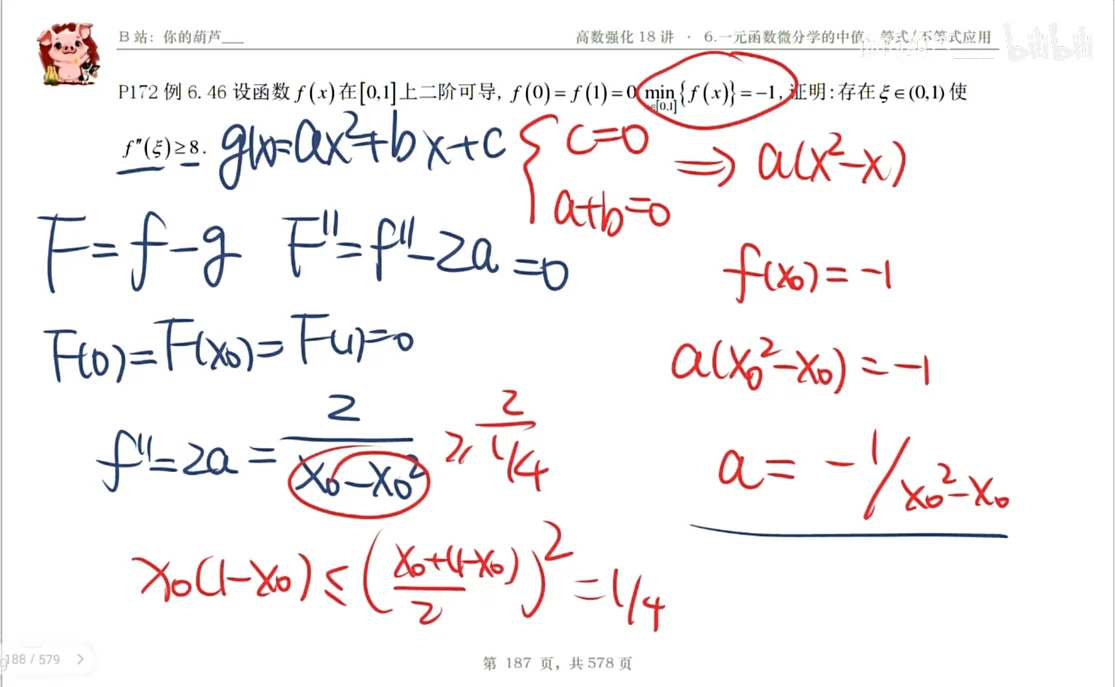 B 站：你的葫芦___
高数强化 18 讲 · 6.一元函数微分学的中值、等式/不等式应用
bilibili
P172 例 6.46 设函数 f(x) 在 [0,1] 上二阶可导, f(0)=f(1)=0 min{f(x)}=-1, 证明:存在 ξ∈(0,1) 使
[0,1]
f″(ξ)≥8.
g(x)=ax²+bx+c { c=0
a+b=0
⇒ a(x²-x)
F=f-g F″=f″-2a=0
f(x₀)=-1
F(0)=F(x₀)=F(1)=0
a(x₀²-x₀)=-1
f″=2a=2/(x₀-x₀²) ≥ 2/(1/4)
a=-1/x₀²-x₀
x₀(1-x₀)≤(x₀+(1-x₀)/2)²=1/4
188 / 579 >
第 187 页，共 578 页